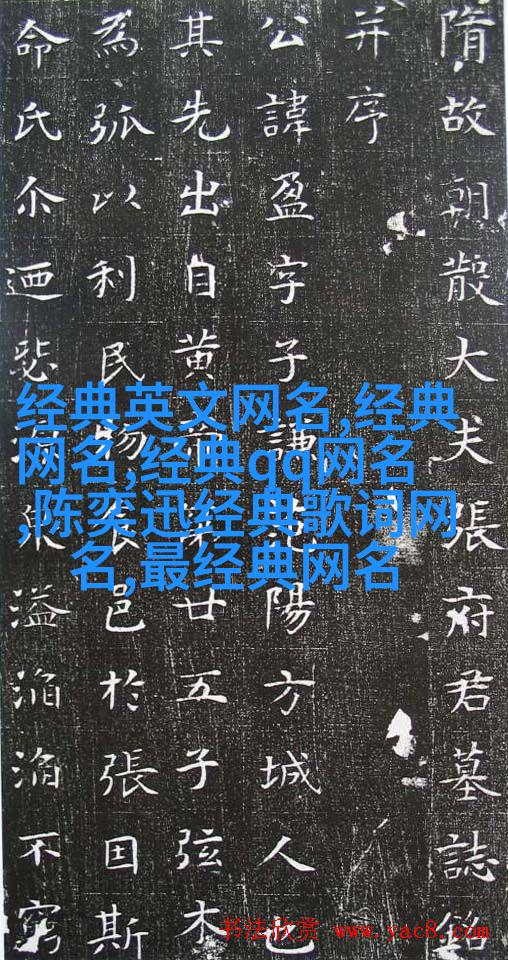 隋故朝散大夫張府君墓誌銘
并序
公諱盈字子謙陽方城人也
其先出自黃帝第廿五子弦木
為弧以利民物食邑於張因斯
命氏尒迺泉溢滔滔不窮
经典英文网名,经典
网名,经典qq网名
,陈奕迅经典歌词网
名,最经典网名
书法欣赏 www.yac8.com